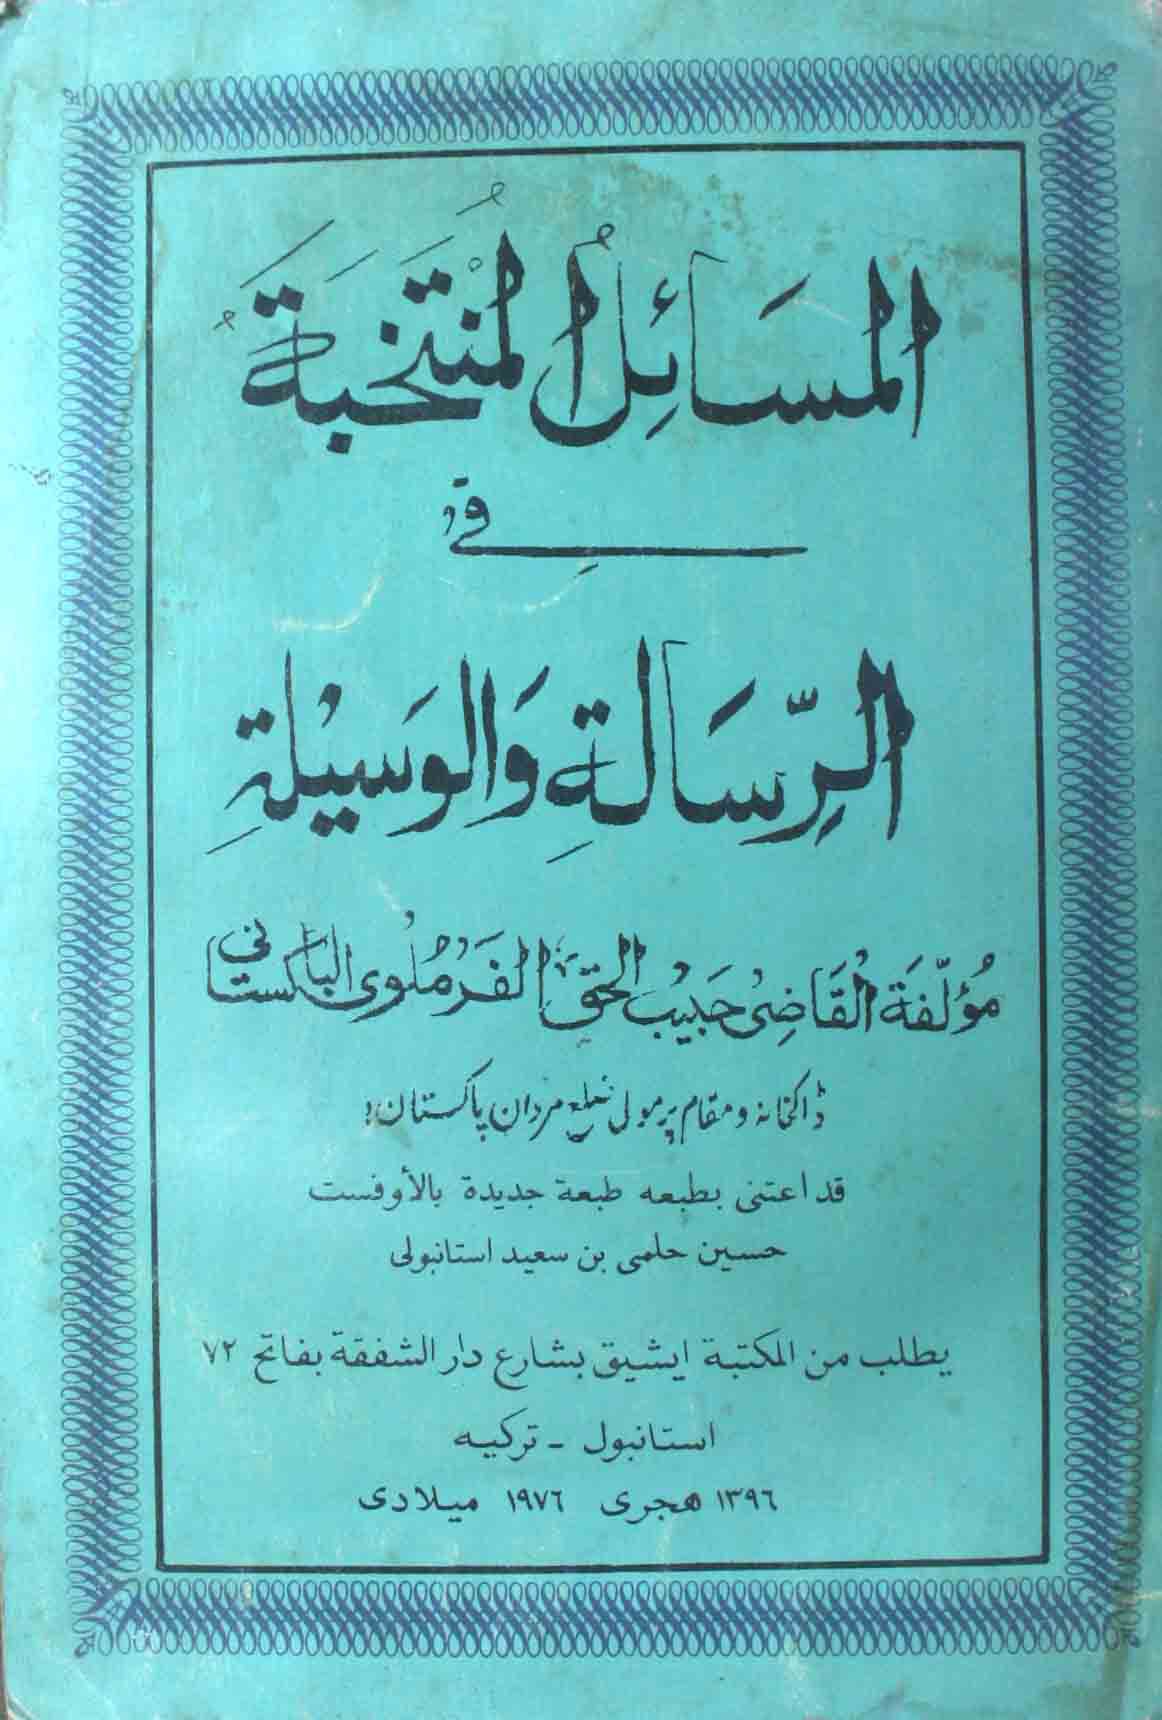 المسَائِلُ المُنْتَخَبَةُ
فِي
الرِّسَالَةِ وَالوَسِيْلَةِ
مؤلّفة القَاضِیْ حَبِيْبُ الحَقِّ الفَرْمُلوى الباكستانى
ڈاکخانہ و مقام پرمولی ضلع مردان پاکستان
قد اعتنى بطبعه طبعة جديدة بالأوفست
حسين حلمى بن سعيد استانبولى
يطلب من المكتبة ايشيق بشارع دار الشفقة بفاتح ٧٢
استانبول - تركيه
١٣٩٦ هجرى ١٩٧٦ ميلادى